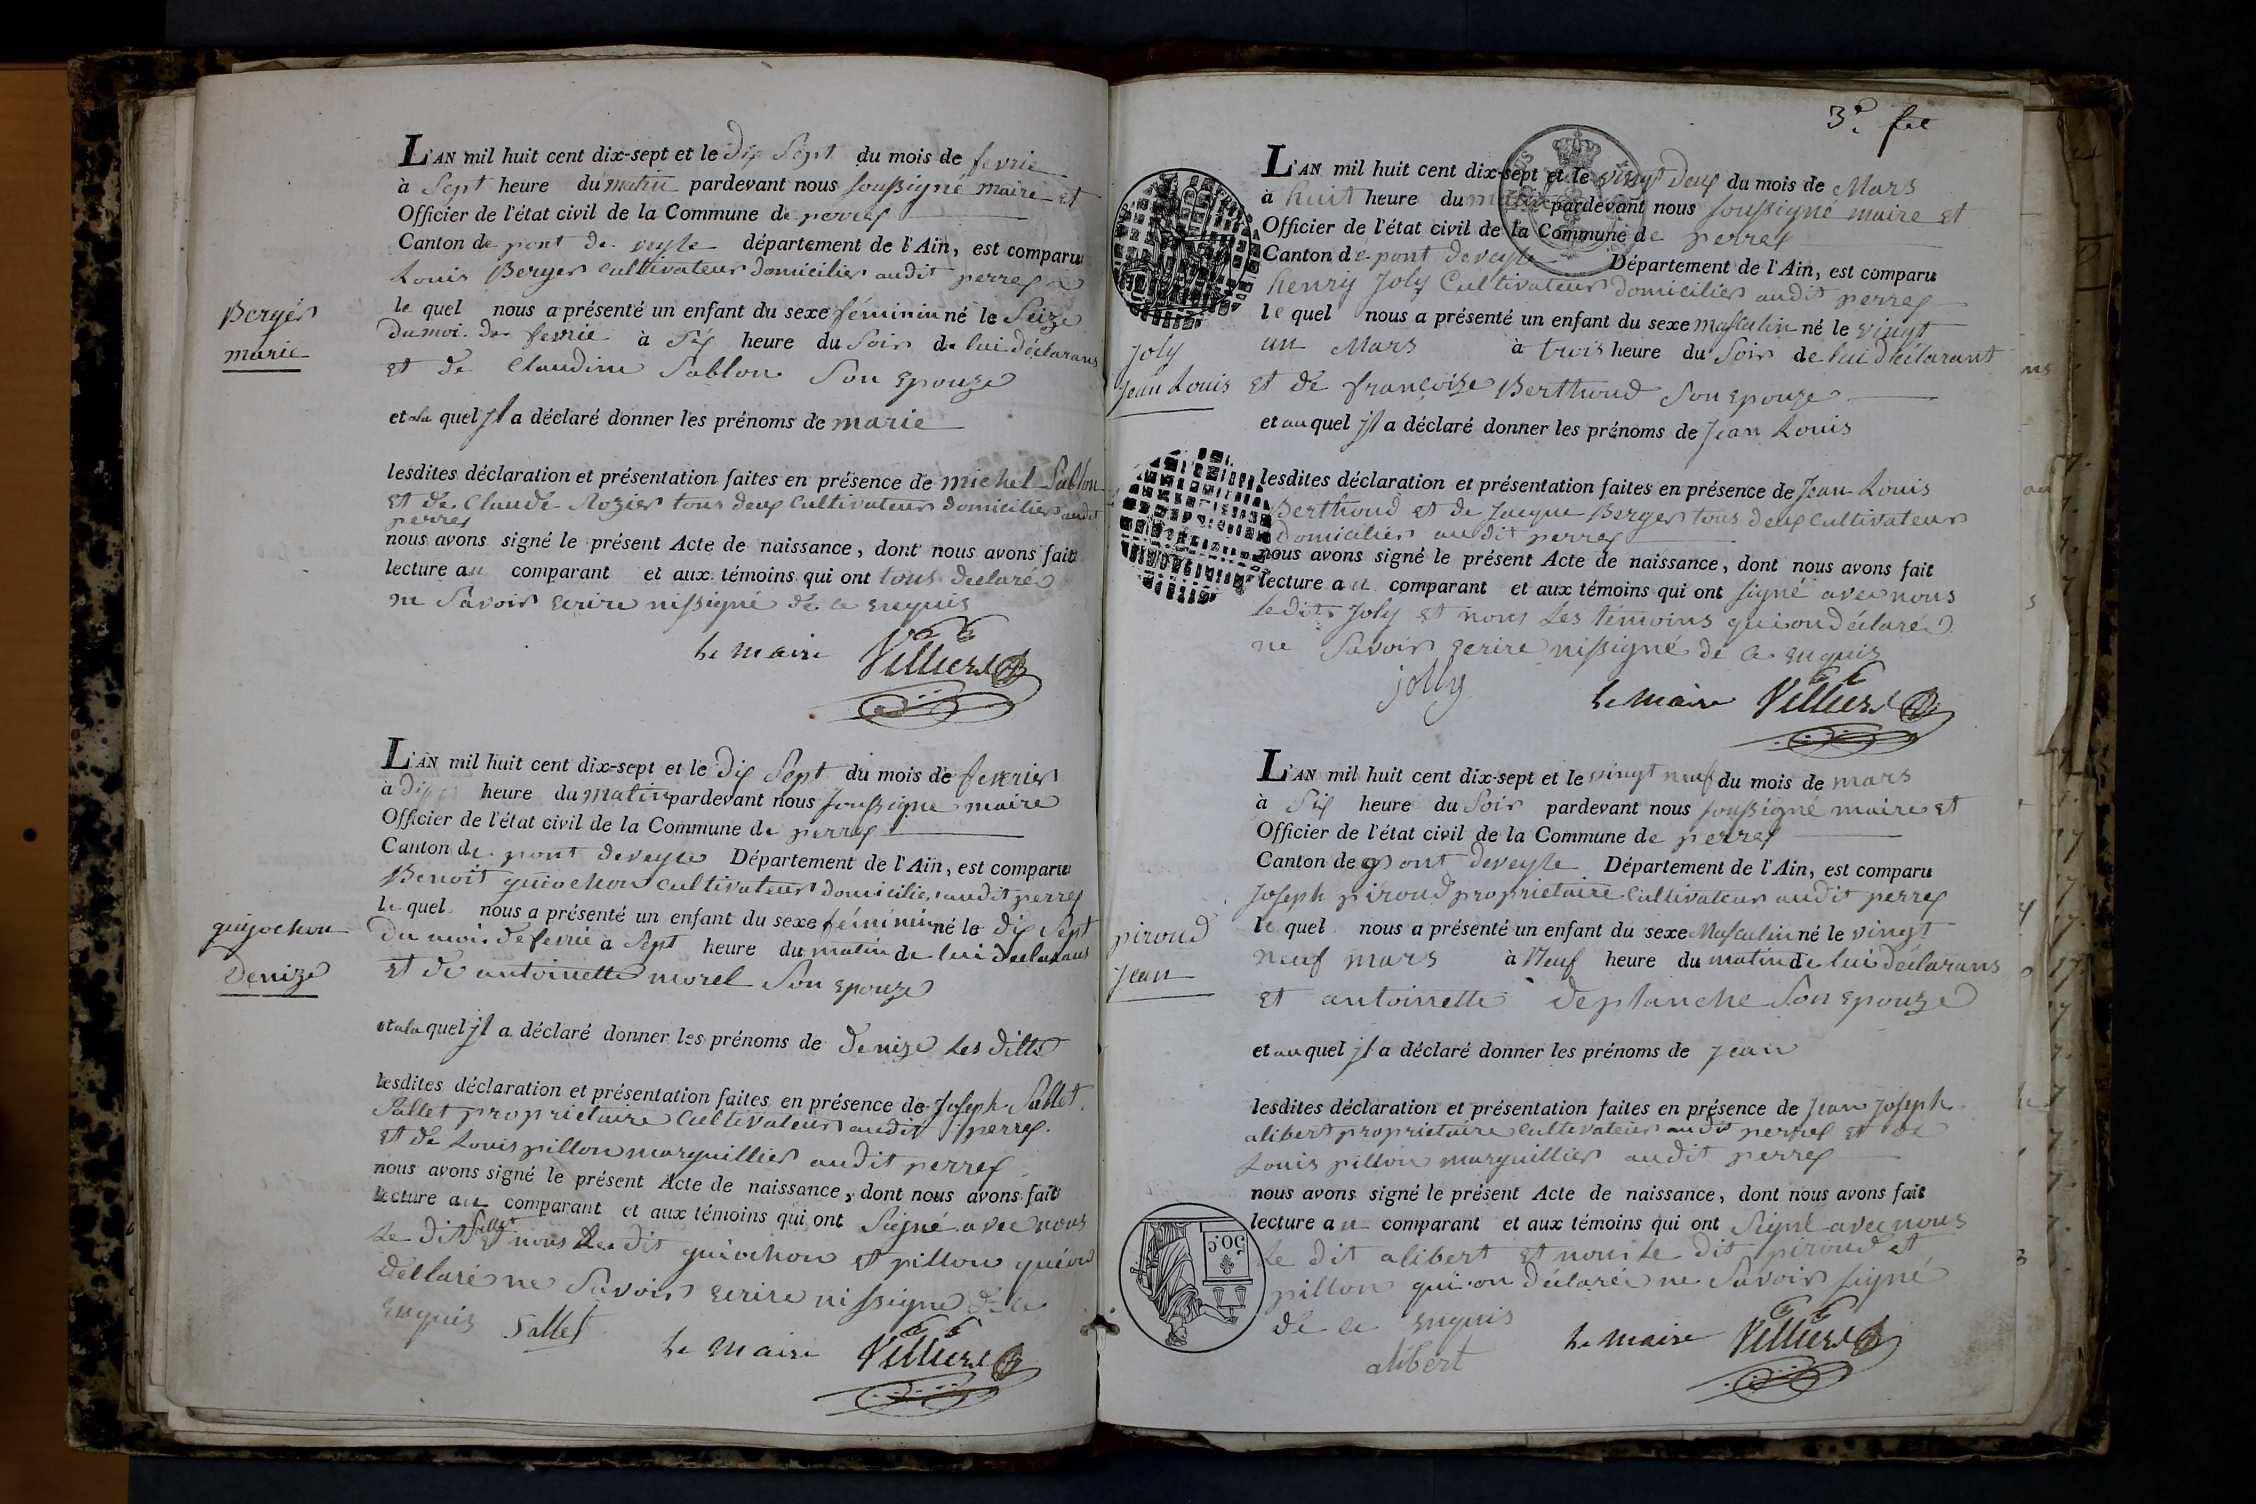 L'AN mil huit cent dix-sept et le dix Sept du mois de fevrie
à Sept heure du matin pardevant nous soussigné maire et
Officier de l'état civil de la Commune de perrex
Canton de pont de veyle département de l'Ain, est comparu
Louis Berger Cultivateur domicilier audit perrex
le quel nous a présenté un enfant du sexe féminin né le Seize
du moi de fevrie à Six heure du Soir de lui déclarans
et de Claudine Sablon Son Epouze
et a la quel jl a déclaré donner les prénoms de marie
lesdites déclaration et présentation faites en présence de michel Sablon
et de Claude Rozier tous deux Cultivateur domicilier audit
perrex
nous avons signé le présent Acte de naissance, dont nous avons fait
lecture au comparant et aux témoins qui ont tous declaré
ne Savoir ecrire nissigné de ce enquis
Le maire Villierd
Berger
marie
L'AN mil huit cent dix-sept et le dix Sept du mois de fevrier
à heure du matin pardevant nous soussigne maire
Officier de l'état civil de la Commune de perrex
Canton de pont de veyle Département de l'Ain, est comparu
Benoit guiochon cultivateur domicilie audit perrex
le quel nous a présenté un enfant du sexe féminin né le dix Sept
du moi de fevrie à Sept heure du matin de lui declarans
et de antoinette morel Son Epouze
et a la quel jl a déclaré donner les prénoms de denize Les ditte
lesdites déclaration et présentation faites en présence de Joseph Sallet
Sallet proprietaire Cultivateur audit perrex
et de Louis pillon marguillier audit perrex
nous avons signé le présent Acte de naissance, dont nous avons fait
lecture au comparant et aux témoins qui ont Signé avec nous
Le dit Sallet et nous Les dit guiochon et pillon qui on
déclaré ne Savoir ecrire nissigne de ce
enquis Sallet
Le maire Villierd
guyochon
denize
3e. fet
L'AN mil huit cent dix-sept et le vingt deux du mois de Mars
à huit heure du matin pardevant nous soussigné maire et
Officier de l'état civil de la Commune de perrex
Canton de pont de veyle Département de l'Ain, est comparu
henry Joly Cultivateur domicilier audit perrex
le quel nous a présenté un enfant du sexe masculin né le vingt
un Mars à trois heure du Soir de lui déclarant
et de françoize Berthoud Son epouze
et au quel jl a déclaré donner les prénoms de Jean Louis
lesdites déclaration et présentation faites en présence de Jean Louis
Berthoud et de Jacque Berger tous deux cultivateur
domicilier audit perrex
nous avons signé le présent Acte de naissance, dont nous avons fait
lecture au comparant et aux témoins qui ont signé avec nous
ledit Joly et nous Les témoins qui on déclaré
ne Savoir ecrire nissigné de ce enquis
jolly
Le maire Villierd
Joly
Jean Louis
L'AN mil huit cent dix-sept et le vingt neuf du mois de mars
à Six heure du Soir pardevant nous soussigné maire et
Officier de l'état civil de la Commune de perrex
Canton de pont de veyle Département de l'Ain, est comparu
Joseph piroud proprietaire Cultivateur audit perrex
le quel nous a présenté un enfant du sexe Masculin né le vingt
neuf mars à Neuf heure du matin de lui déclarans
et antoinette deplanche Son epouze
et au quel jl a déclaré donner les prénoms de Jean
lesdites déclaration et présentation faites en présence de Jean Joseph
alibert proprietaire cultivateur audit perrex et de
Louis pillon marguillier audit perrex
nous avons signé le présent Acte de naissance, dont nous avons fait
lecture au comparant et aux témoins qui ont Signé avec nous
Le dit alibert et nous Le dit piroud et
pillon qui on déclaré ne Savoir signé
de ce enquis
alibert
Le maire Villierd
piroud
Jean
50 C